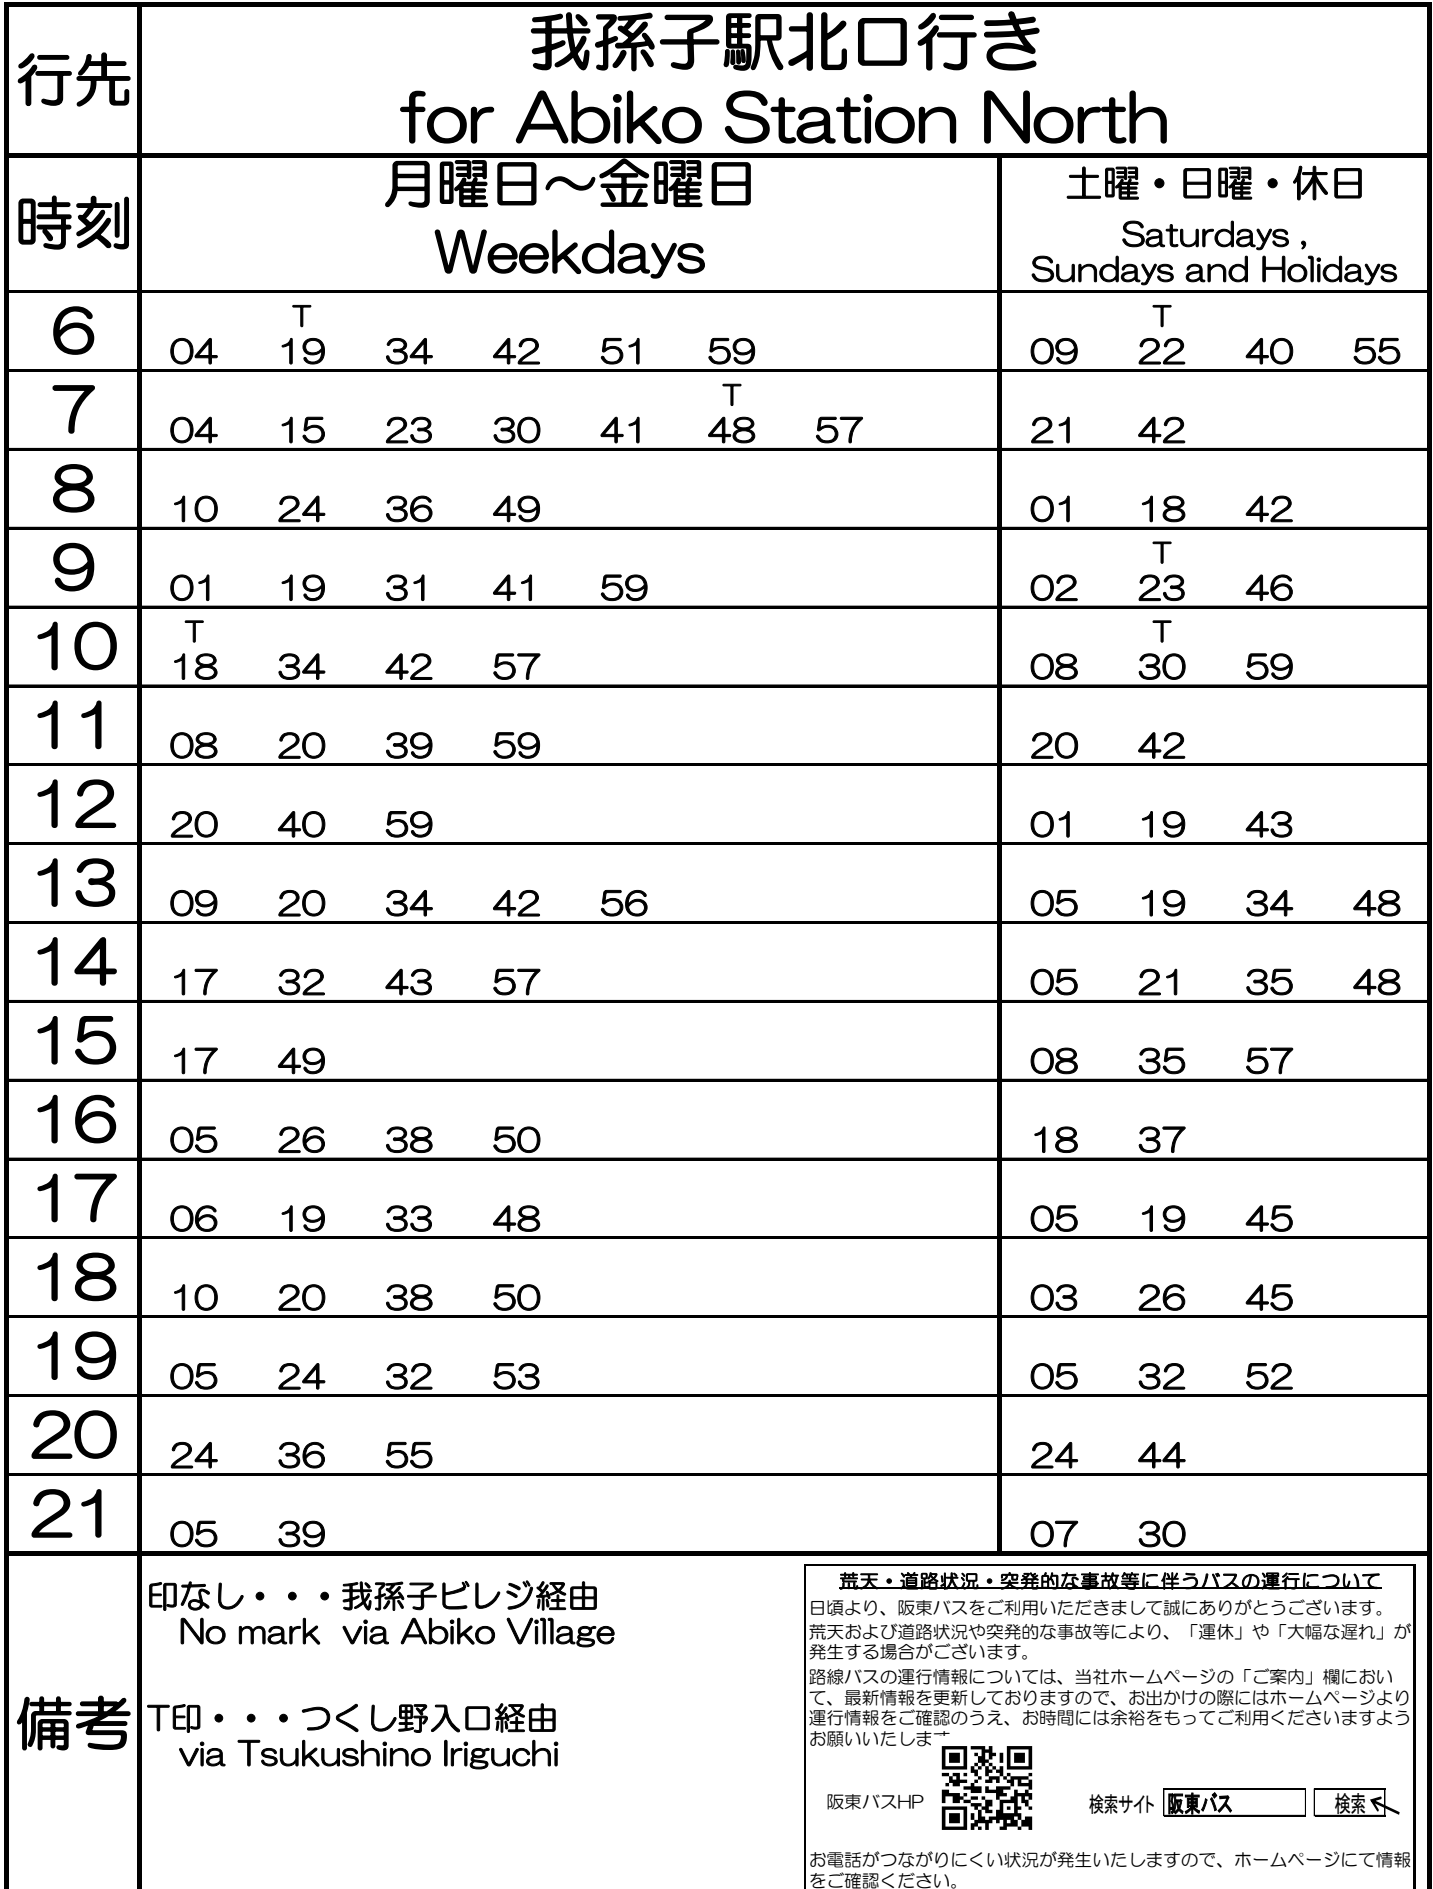 行先
我孫子駅北口行き
for Abiko Station North
時刻
月曜日～金曜日
Weekdays
土曜・日曜・休日
Saturdays ,
Sundays and Holidays
T T
6 04 19 34 42 51 59 09 22 40 55
T
7 04 15 23 30 41 48 57 21 42
8 10 24 36 49 01 18 42
T
9 01 19 31 41 59 02 23 46
T T
10 18 34 42 57 08 30 59
11 08 20 39 59 20 42
12 20 40 59 01 19 43
13 09 20 34 42 56 05 19 34 48
14 17 32 43 57 05 21 35 48
15 17 49 08 35 57
16 05 26 38 50 18 37
17 06 19 33 48 05 19 45
18 10 20 38 50 03 26 45
19 05 24 32 53 05 32 52
20 24 36 55 24 44
21 05 39 07 30
備考
印なし・・・我孫子ビレジ経由
No mark via Abiko Village
T印・・・つくし野入口経由
via Tsukushino Iriguchi
荒天・道路状況・突発的な事故等に伴うバスの運行について
日頃より、阪東バスをご利用いただきまして誠にありがとうございます。
荒天および道路状況や突発的な事故等により、「運休」や「大幅な遅れ」が
発生する場合がございます。
路線バスの運行情報については、当社ホームページの「ご案内」欄におい
て、最新情報を更新しておりますので、お出かけの際にはホームページより
運行情報をご確認のうえ、お時間には余裕をもってご利用くださいますよう
お願いいたしま
阪東バスHP
検索サイト 阪東バス 検索
お電話がつながりにくい状況が発生いたしますので、ホームページにて情報
をご確認ください。